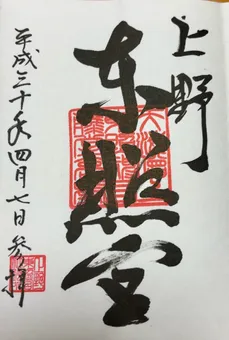 上野
東照宮
平成三十年四月七日参拝